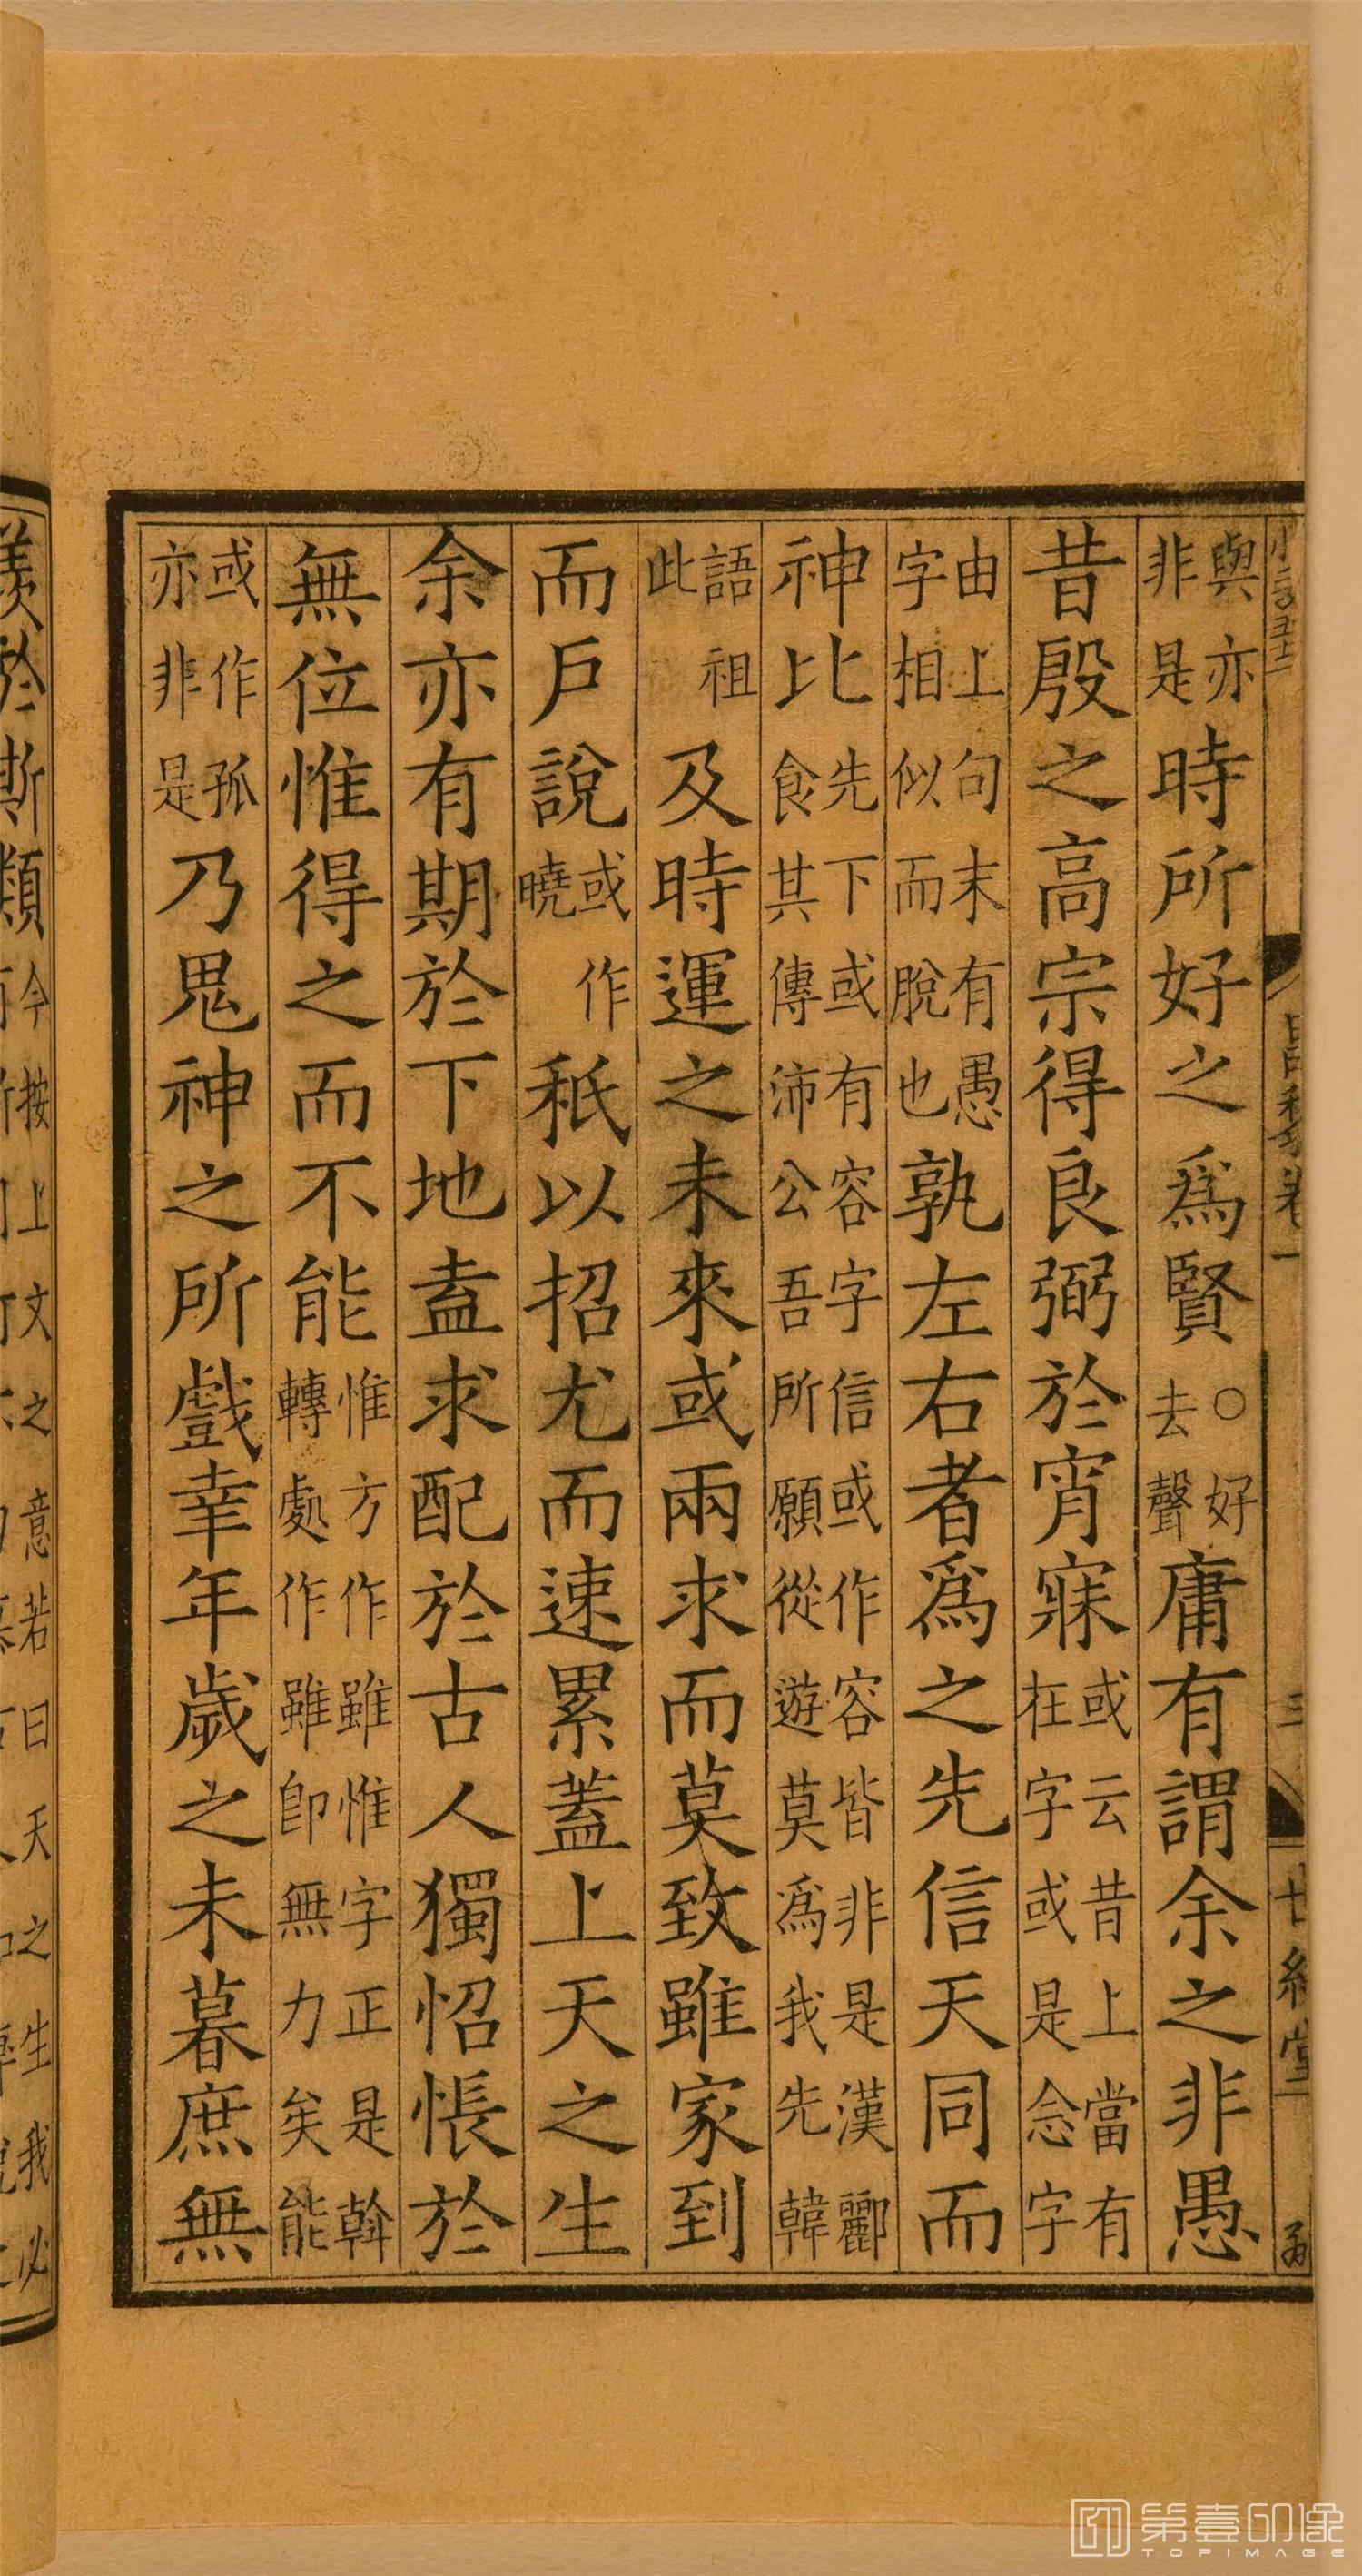 與亦非是時所好之爲賢○好去聲庸有謂余之非愚
昔殷之高宗得良弼於宵寐或云昔上當有在字或是念字
由上句末有愚字相似而脫也孰左右者爲之先信天同而
神比先下或有容字信或作容皆非是漢酈食其傳沛公吾所願從遊莫爲我先韓
語祖此及時運之未來或兩求而莫致雖家到
而戶說或作曉秖以招尤而速累蓋上天之生
余亦有期於下地盍求配於古人獨怊悵於
無位惟得之而不能惟方作雖惟字正是斡轉處作雖卽無力矣能
或作作孤亦非是乃鬼神之所戲幸年歲之未暮庶無
昌黎卷一
三
世綵堂
今按上文之意若曰天之生我必
羨於斯類
第壹印像
TOPIMAGE